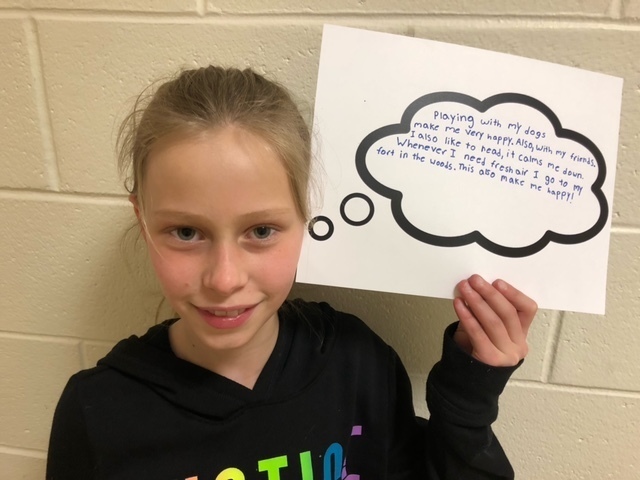 Playing with my dogs
make me very happy. Also, with my friends.
I also like to read, it calms me down.
Whenever I need fresh air I go to my
fort in the woods. This also make me happy!